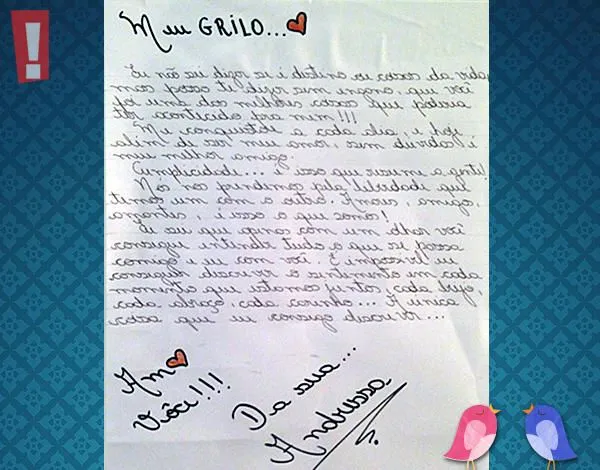 Meu GRILO...
Eu não sei dizer se é destino ou coisa da vida,
mas posso te dizer sem engano, que você
foi uma das melhores coisas que poderia
ter acontecido pra mim!!!
Me conquistou a cada dia, e hoje
além de ser meu amor, sem dúvidas é
meu melhor amigo.
Cumplicidade... é isso que resume a gente!
Nós nos prendemos pela liberdade que
temos um com o outro. Amor, amigo,
amantes, é isso o que somos!
Eu sei que apenas com um olhar você
consegue entender tudo o que se passa
comigo e eu com você. É impossível eu
conseguir descrever o sentimento em cada
momento que estamos juntos, cada beijo,
cada abraço, cada carinho... A única
coisa que eu consigo descrever...
Amo
Você!!!!
Da sua...
Andressa